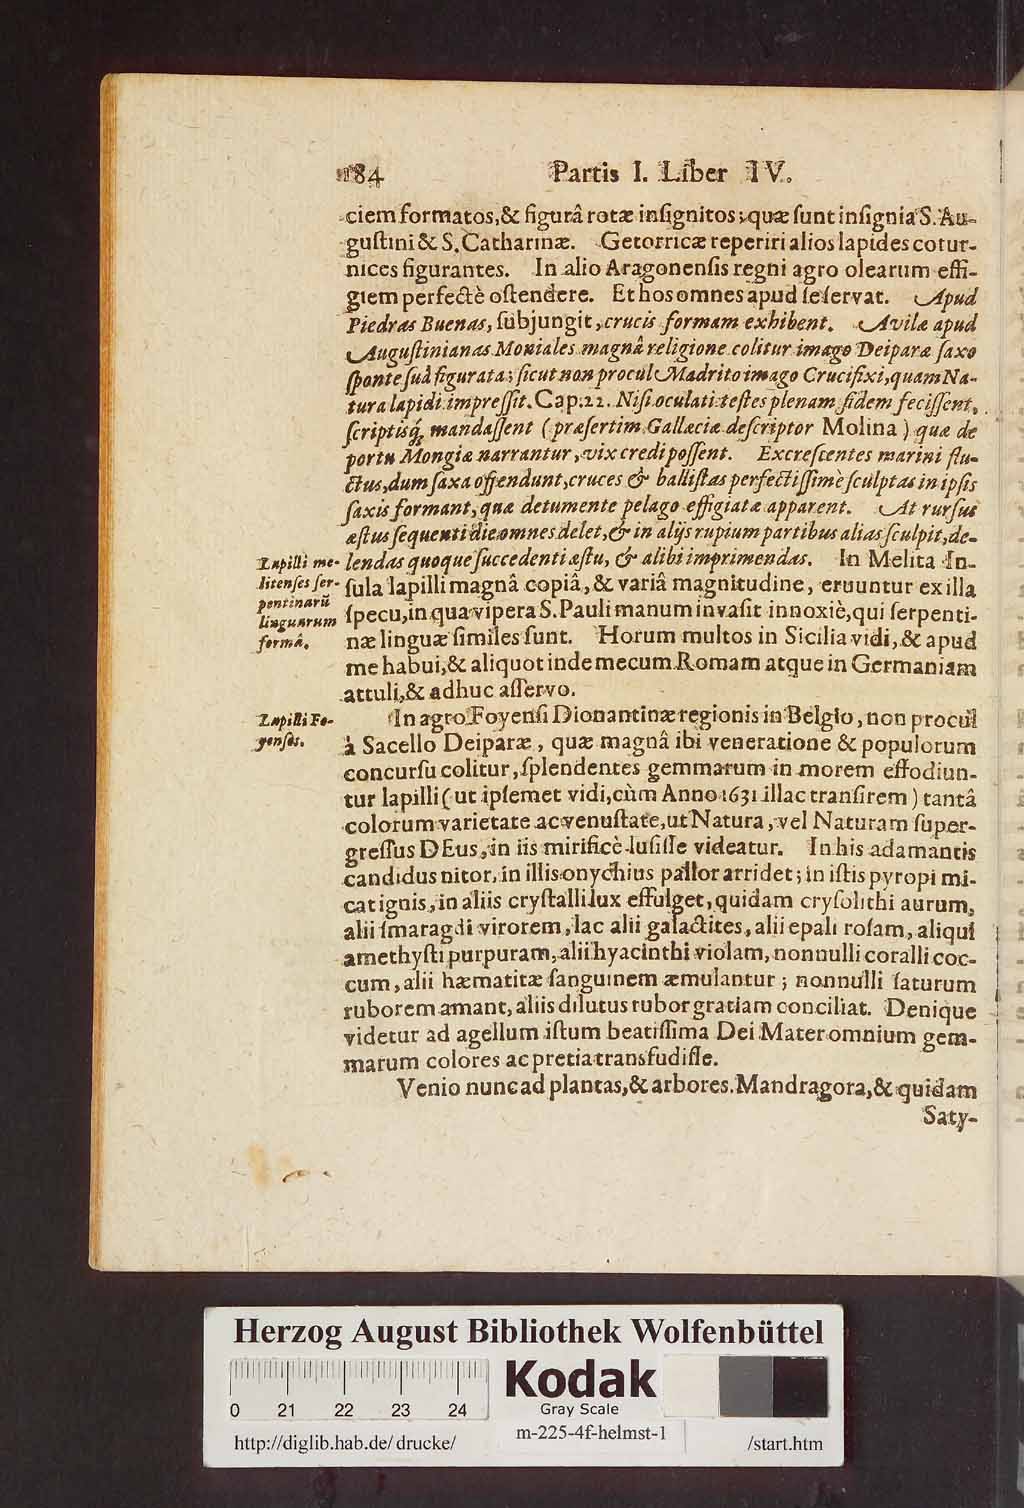 184 Partis I. Liber IV.
ciem formatos, & figurâ rotæ inſignitos; quæ ſunt inſignia S. Au-
guſtini & S. Catharinæ. Getorricæ reperiri alios lapides cotur-
nices figurantes. In alio Aragonenſis regni agro olearum effi-
giem perfectè oſtendere. Et hos omnes apud ſe ſervat. Apud
Piedras Buenas, ſubjungit, crucis formam exhibent. Avilæ apud
Auguſtinianas Moniales magnâ religione colitur imago Deiparæ ſaxo
ſponte ſuâ figurata; ſicut non procul Madrito imago Crucifixi, quam Na-
tura lapidi impreſſit. Cap. 22. Niſi oculati teſtes plenam fidem feciſſent,
ſcriptisq́; mandaſſent (præſertim Gallæciæ deſcriptor Molina) quæ de
portu Mongiæ narrantur, vix credi poſſent. Excreſcentes marini flu-
ctus, dum ſaxa offendunt, cruces & balliſtas perfectiſſimè ſculptas in ipſis
ſaxis formant, quæ detumente pelago effigiatæ apparent. At rurſus
æſtus ſequenti die omnes delet, & in alijs rupium partibus alias ſculpit, de-
lendas quoque ſuccedenti æſtu, & alibi imprimendas. In Melita In-
ſula lapilli magnâ copiâ, & variâ magnitudine, eruuntur ex illa
ſpecu, in qua vipera S. Pauli manum invaſit innoxiè, qui ſerpenti-
næ linguæ ſimiles ſunt. Horum multos in Sicilia vidi, & apud
me habui, & aliquot inde mecum Romam atque in Germaniam
attuli, & adhuc aſſervo.
Lapilli me-
litenſes ſer-
pentinarũ
linguarum
formâ.
In agro Foyenſi Dionantinæ regionis in Belgio, non procul
à Sacello Deiparæ, quæ magnâ ibi veneratione & populorum
concurſu colitur, ſplendentes gemmarum in morem effodiun-
tur lapilli (ut ipſemet vidi, cùm Anno 1631 illac tranſirem) tantâ
colorum varietate ac venuſtate, ut Natura, vel Naturam ſuper-
greſſus DEus, in iis mirificè luſiſſe videatur. In his adamantis
candidus nitor, in illis onychius pallor arridet; in iſtis pyropi mi-
cat ignis, in aliis cryſtalli lux effulget, quidam cryſolithi aurum,
alii ſmaragdi virorem, lac alii galactites, alii epali roſam, aliqui
amethyſti purpuram, alii hyacinthi violam, nonnulli coralli coc-
cum, alii hæmatitæ ſanguinem æmulantur; nonnulli ſaturum
ruborem amant, aliis dilutus rubor gratiam conciliat. Denique
videtur ad agellum iſtum beatiſſima Dei Mater omnium gem-
marum colores ac pretia transfudiſſe.
Lapilli Fo-
yenſes.
Venio nunc ad plantas, & arbores. Mandragora, & quidam
Saty-
Herzog August Bibliothek Wolfenbüttel
0 21 22 23 24
Kodak
Gray Scale
http://diglib.hab.de/drucke/ m-225-4f-helmst-1 /start.htm